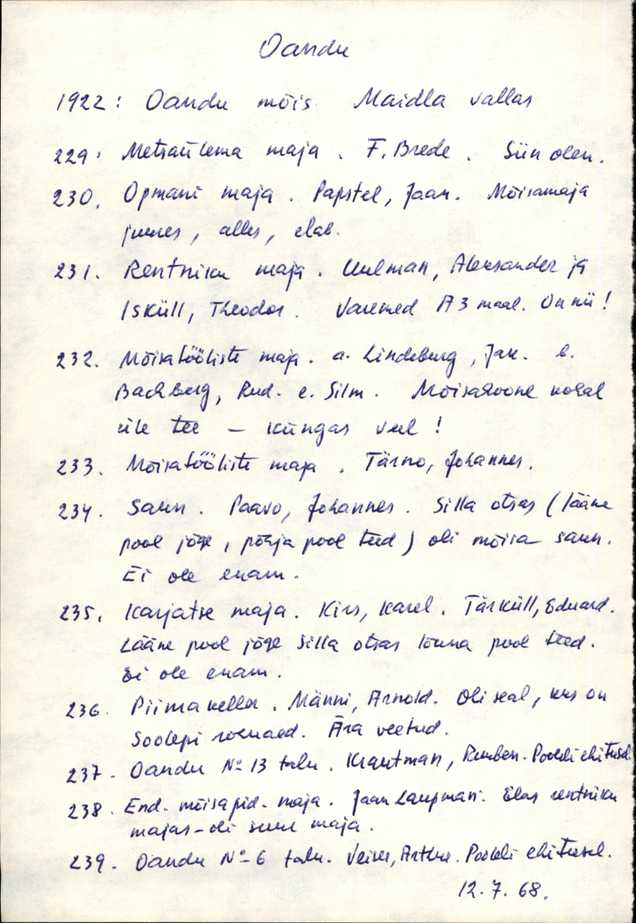 Oandu
1922: Oandu mõis Maidla vallas
229. Metsaülema maja. F. Brede. Siin olen.
230. Opmani maja. Papstel, Jaan. Mõisamaja
juures, alles, elab.
231. Rentniku maja. Uulman, Aleksander ja
Isküll, Theodor. Varemed A3 maal. On nii!
232. Mõisatööliste maja. a. Lindeburg, Jak. b.
Bachberg, Rud. c. Silm. Mõisahoone kohal
üle tee – küngas veel!
233. Mõisatööliste maja. Tärno, Johannes.
234. Saun. Paavo, Johannes. Silla otsas (lääne
pool jõge, põhja pool teed) oli mõisa saun.
Ei ole enam.
235. Karjatse maja. Kirs, Karel. Tärküll, Eduard.
Lääne pool jõge silla otsas lõuna pool teed.
Ei ole enam.
236. Piimakeller. Männi, Arnold. Oli seal, kus on
Soolepi Ära veetud.
237. Oandu No 13 talu. Krautman, Ruuben. Pooleli ehitusel.
238. End. mõisapid. maja. Jaan Laupman. Elas rentniku
majas – oli suur maja.
239. Oandu No 6 talu. Arthur. Pooleli ehitusel.
12.7.68.